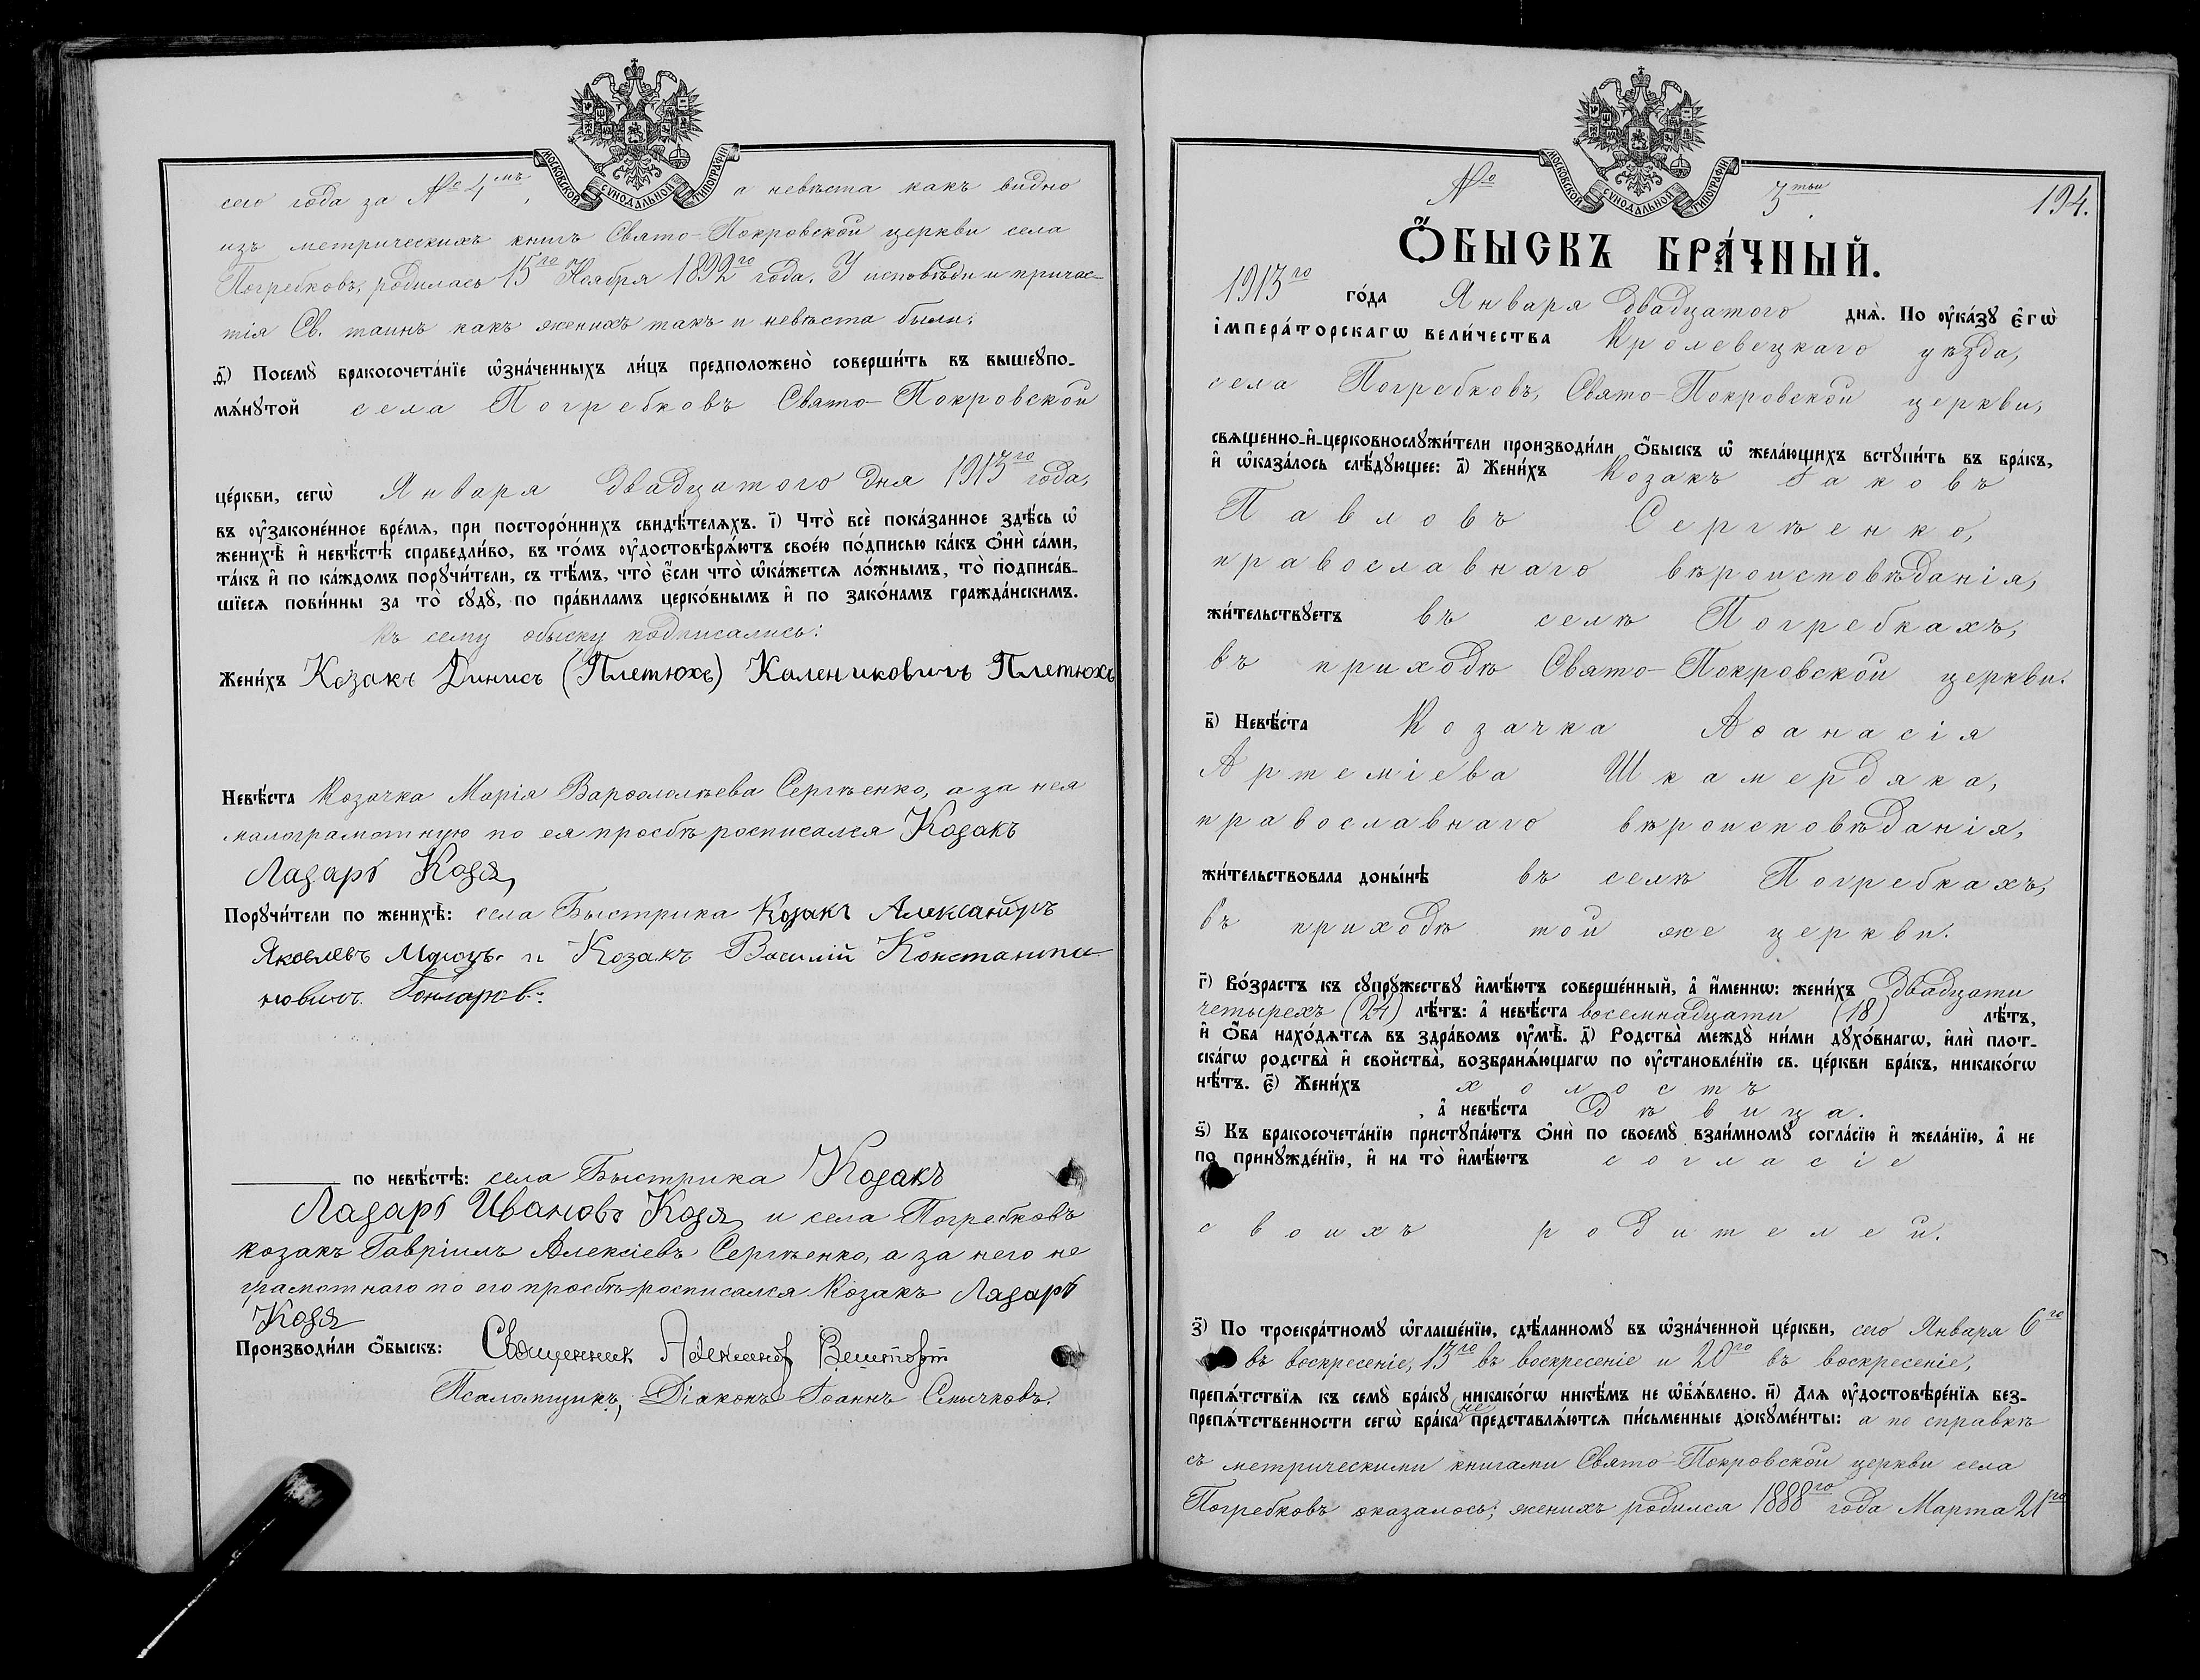 МОСКОВСКОЙ СѴНОДАЛЬНОЙ ТИПОГРАФІИ
сего года за № 4мъ, а невѣста какъ видно
изъ метрическихъ книгъ Свято-Покровской церкви села
Погребковъ, родилась 15го Ноября 1892го года. У исповѣди и причас-
тія Св. таинъ какъ женихъ такъ и невѣста были.
ѳ҃) Посемꙋ̀ бракосочета́нїе ѡ҆зна́ченныхъ ли́цъ предположено̀ соверши́ть въ вышеꙋпо-
мѧ́нꙋтой села Погребковъ Свято-Покровской
це́ркви, сегѡ̀ Января двадцатого дня 1913го года,
въ ᲂу҆законе́нное вре́мѧ, при посторо́ннихъ свидѣ́телѧхъ. і҃) Что̀ всѐ пока́занное здѣ́сь ѡ҆
женихѣ̀ и҆ невѣ́стѣ справедли́во, въ то́мъ ᲂу҆достовѣрѧ́ютъ свое́ю по́дписью ка́къ ѻ҆нѝ са́ми,
та́къ и҆ по ка́ждомъ порꙋчи́тели, съ тѣ́мъ, что̀ є҆́сли что̀ ѡ҆ка́жетсѧ ло́жнымъ, то̀ подписа́в-
шїесѧ пови́нны за то̀ сꙋдꙋ̀, по пра́виламъ церко́внымъ и҆ по зако́намъ гражда́нскимъ.
Къ сему обыску подписались:
Жени́хъ Козакъ Динисъ (Плетюхъ) Каленниковичъ Плетюхъ
Невѣ́ста Козачка Марія Варѳоломѣева Сергѣенко, а за нея
малограмотную по ея просьбѣ росписался Козакъ
Лазарь Козя,
Порꙋчи́тели по женихѣ̀: села Быстрика Козакъ Александръ
Яковлевъ и Козакъ Василій Константи-
новичъ Гончаровъ.
по невѣ́стѣ: села Быстрика Козакъ
Лазарь Ивановъ Козя, и села Погребковъ
козакъ Гавріилъ Алексіевъ Сергѣенко, а за него не
грамотнаго по его просьбѣ росписался Козакъ Лазарь
Козя
Производи́ли ѻ҆́быскъ: Священникъ
Псаломщикъ, Діаконъ Іоаннъ Смычковъ.
МОСКОВСКОЙ СѴНОДАЛЬНОЙ ТИПОГРАФІИ
№ 3тьи. 194.
Ѻ҆́БЫСКЪ БРА́ЧНЫЙ.
1913го го́да Января двадцатого днѧ̀. По ᲂу҆ка́зꙋ є҆гѡ̀
і҆мпера́торскагѡ вели́чества Кролевецкаго уѣзда,
села Погребковъ, Свято-Покровской церкви,
свѧщенно-и҆-церковнослꙋжи́тели производи́ли ѻ҆́быскъ ѡ҆ жела́ющихъ встꙋпи́ть въ бра́къ,
и҆ ѡ҆каза́лось слѣ́дꙋющее: а҃) Жени́хъ Козакъ Іаковъ
Павловъ Сергѣенко,
православнаго вѣроисповѣданія,
жи́тельствꙋетъ въ селѣ Погребкахъ,
въ приходѣ Свято-Покровской церкви.
в҃) Невѣ́ста Козачка Аѳанасія
Артеміева Шкамердяка,
православнаго вѣроисповѣданія,
жи́тельствовала доны́нѣ въ селѣ Погребкахъ,
въ приходѣ той же церкви.
г҃) Во́зрастъ къ сꙋпрꙋ́жествꙋ и҆мѣ́ютъ соверше́нный, а҆ и҆́менно: жени́хъ двадцати
четырехъ (24) лѣ́тъ: а҆ невѣ́ста восемнадцати (18) лѣ́тъ,
и҆ ѻ҆́ба нахо́дѧтсѧ въ здра́вомъ ᲂу҆мѣ̀. д҃) Родства̀ междꙋ̀ ни́ми дꙋхо́внагѡ, и҆лѝ плот-
ска́гѡ родства̀ и҆ сво́йства, возбранѧ́ющагѡ по ᲂу҆становле́нїю св. це́ркви бра́къ, никако́гѡ
нѣ́тъ. є҃) Жени́хъ холостъ
, а҆ невѣ́ста дѣвица.
ѕ҃) Къ бракосочета́нїю пристꙋпа́ютъ ѻ҆нѝ по своемꙋ̀ взаи́мномꙋ согла́сїю и҆ жела́нїю, а҆ не
по принꙋжде́нїю, и҆ на то̀ и҆мѣ́ютъ согласіе
своихъ родителей.
з҃) По троекра́тномꙋ ѡ҆глаше́нїю, сдѣ́ланномꙋ въ ѡ҆зна́ченной це́ркви, сего Января 6го
въ воскресеніе, 13го въ воскресеніе и 20го въ воскресеніе,
препѧ́тствїѧ къ семꙋ̀ бра́кꙋ никако́гѡ никѣ́мъ не ѡ҆б̾ѧ́влено. и҃) Длѧ ᲂу҆достовѣре́нїѧ без-
препѧ́тственности сегѡ̀ бра́ка не представлѧ́ютсѧ пи́сьменные докꙋме́нты: а по справкѣ
съ метрическими книгами Свято-Покровской церкви села
Погребковъ оказалось; женихъ родился 1888го года Марта 21го